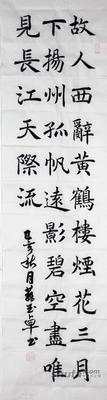 故人西辭黃鶴樓煙花三月
下揚州孤帆遠影碧空盡唯
見長江天際流
亥秋月玉卓書